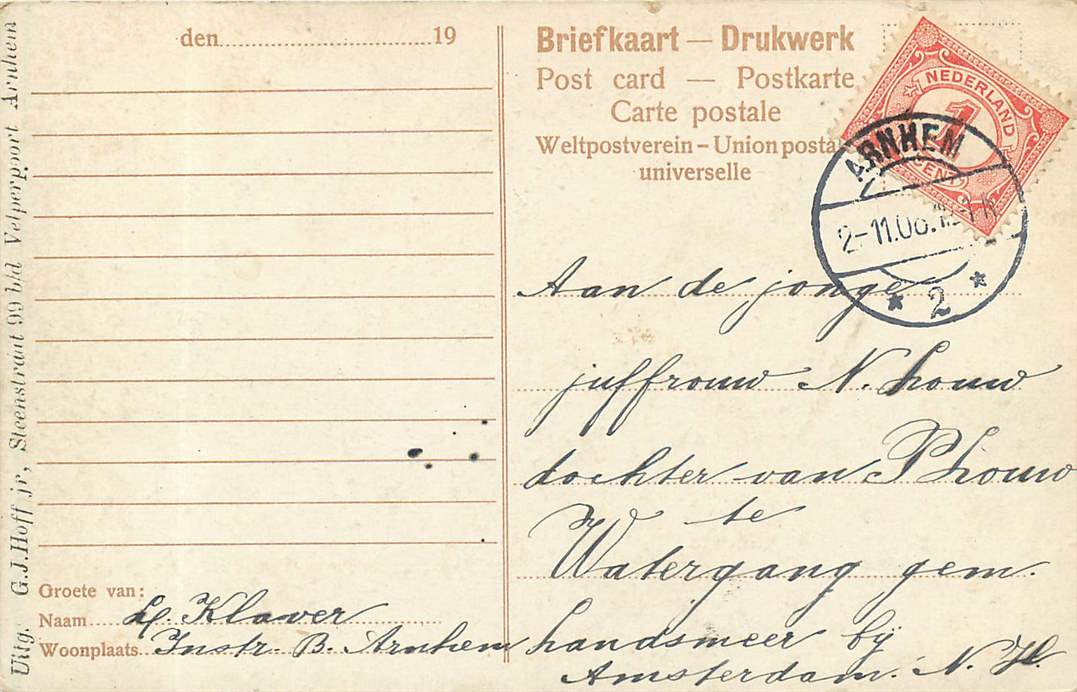 Uitg. G.J.Hoff jr, Steenstraat 99 b/d Velperpoort Arnhem
den 19
Groete van:
Naam H. Klaver
Woonplaats Instr. B. Arnhem
Briefkaart — Drukwerk
Post card — Postkarte
Carte postale
Weltpostverein – Union postale
universelle
NEDERLAND
1
CENT
ARNHEM
2-11.08.
* 2 *
Aan de jonge
juffrouw N. houw
dochter van P houw
te
Watergang gem.
handsmeer bij
Amsterdam. N. H.